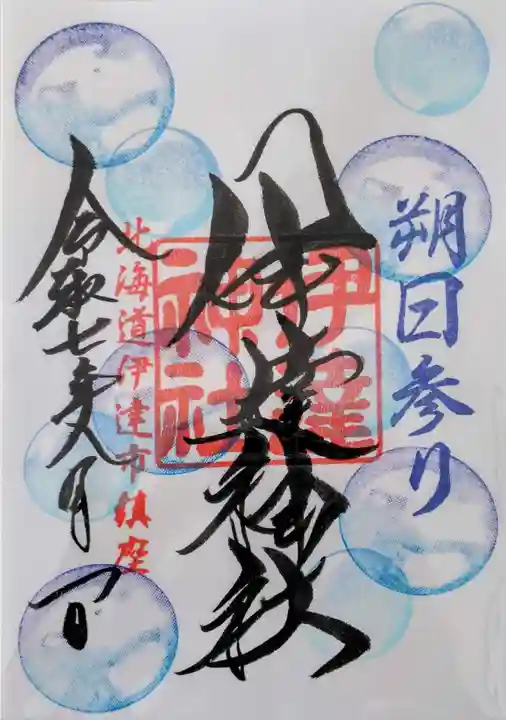 朔日参り
伊達神社
伊達
神社
北海道伊達市鎮座
令和七年八月一日